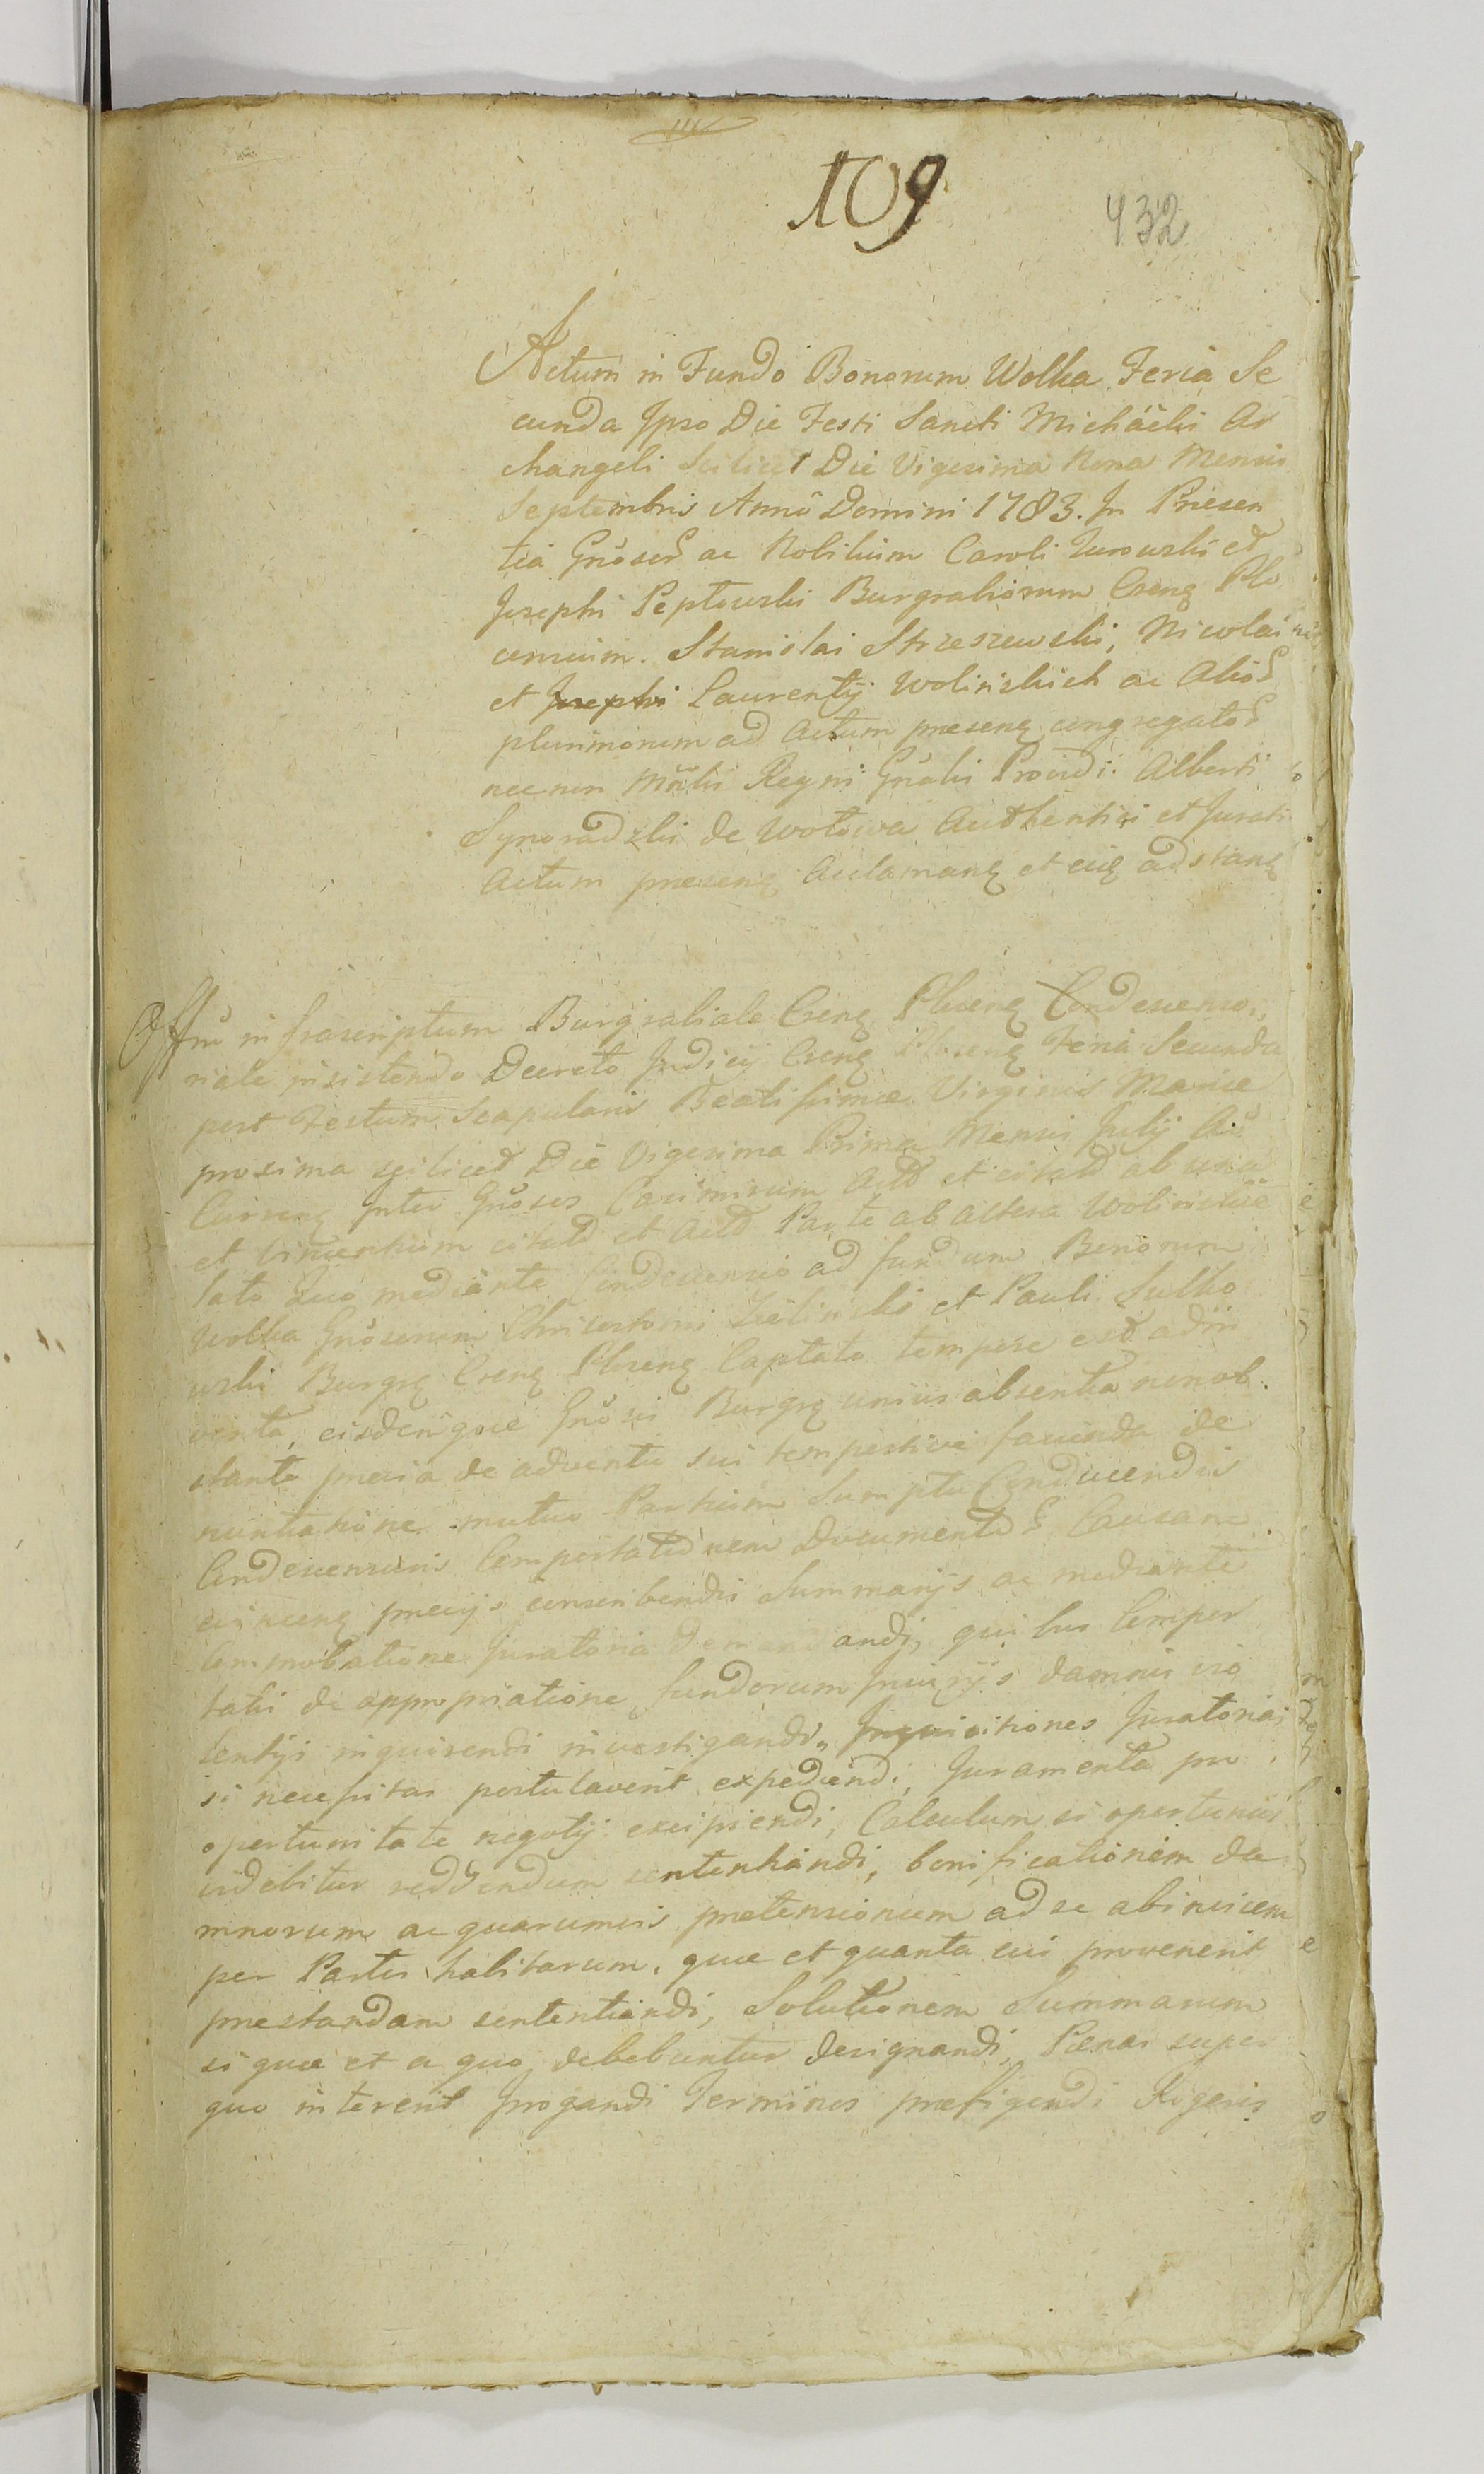 109
432
Actum in Fundo Bonorum Wolka Feria Se
cunda Ipso Die Festi Sancti Michäelis Ar
changeli Scilicet Die Vigesima Nona Mensis
Septembris Anno Domini 1783. In Præsen
tia Gnoser ac Nobilium Caroli Zurowski et
Josephi Peptowski Burgrabiorum Csens Plo
censium. Stanislai Strzeszewski, Nicolai
et Josephi Laurentÿ Wolinskich ac Alior
plurimorum ad Actum præsens congregator
necnon Mrlis Regni Gnalis Providi Alberti
Synoradzki de Wolowa Authentici et Jurati
Actum præsens Aclamans et eiq adstans
Offm infrascriptum Burgrabiale Csens Plocens Condescenso,
riale insistendo Decreto Judicÿ Csens Plocens Feria Secunda
post Festum Scapularis Beatissimæ Virginis Mariæ
proxima scilicet Die Vigesima Prima Mensis Julÿ Ai
Currens Inter Gnosos Casimirum Act et citat ab una
et Vincentium citat et Act Parte ab altera Wolinskie
lato Quo mediante Condescensio ad fundum Bonorum
Wolka Gnosorum Chrisostomi Zielinski et Pauli Sulko
wski Burgr Csens Plocens Captato tempore est adin
venta, eisdemque Gnosis Burgr unius absentia non ob.
stante prævia de adventu sui tempestive facienda de
nuntiatione mutuo Partium Sumptu Conducendis
Condescensionis Comportationem Documentor Causam
præcÿs conscribendis Summarÿs ac mediante
Comprobatione Juratoria Demandandi, quibus Compor
tatis de appropriatione fundorum Injurÿs damnis vio
lentÿs inquirendi investigandi, Inquisitiones Juratorias
si necessitas postulaverit expediendi, Juramenta pro
opertunitate negotÿ excipiendi, Calculum si opertunius
videbitur reddendum sententiandi, bonificationem da
mnorum ac quarumvis prætensionum ad se abinvicem
per Partes habitarum, quæ et quanta cui provenerit
præstandam sententiandi, Solutionem Summarum
si quæ et a quo debebuntur designandi, Pænas super
quo intererit Irogandi Terminos præfigendi Rigoris